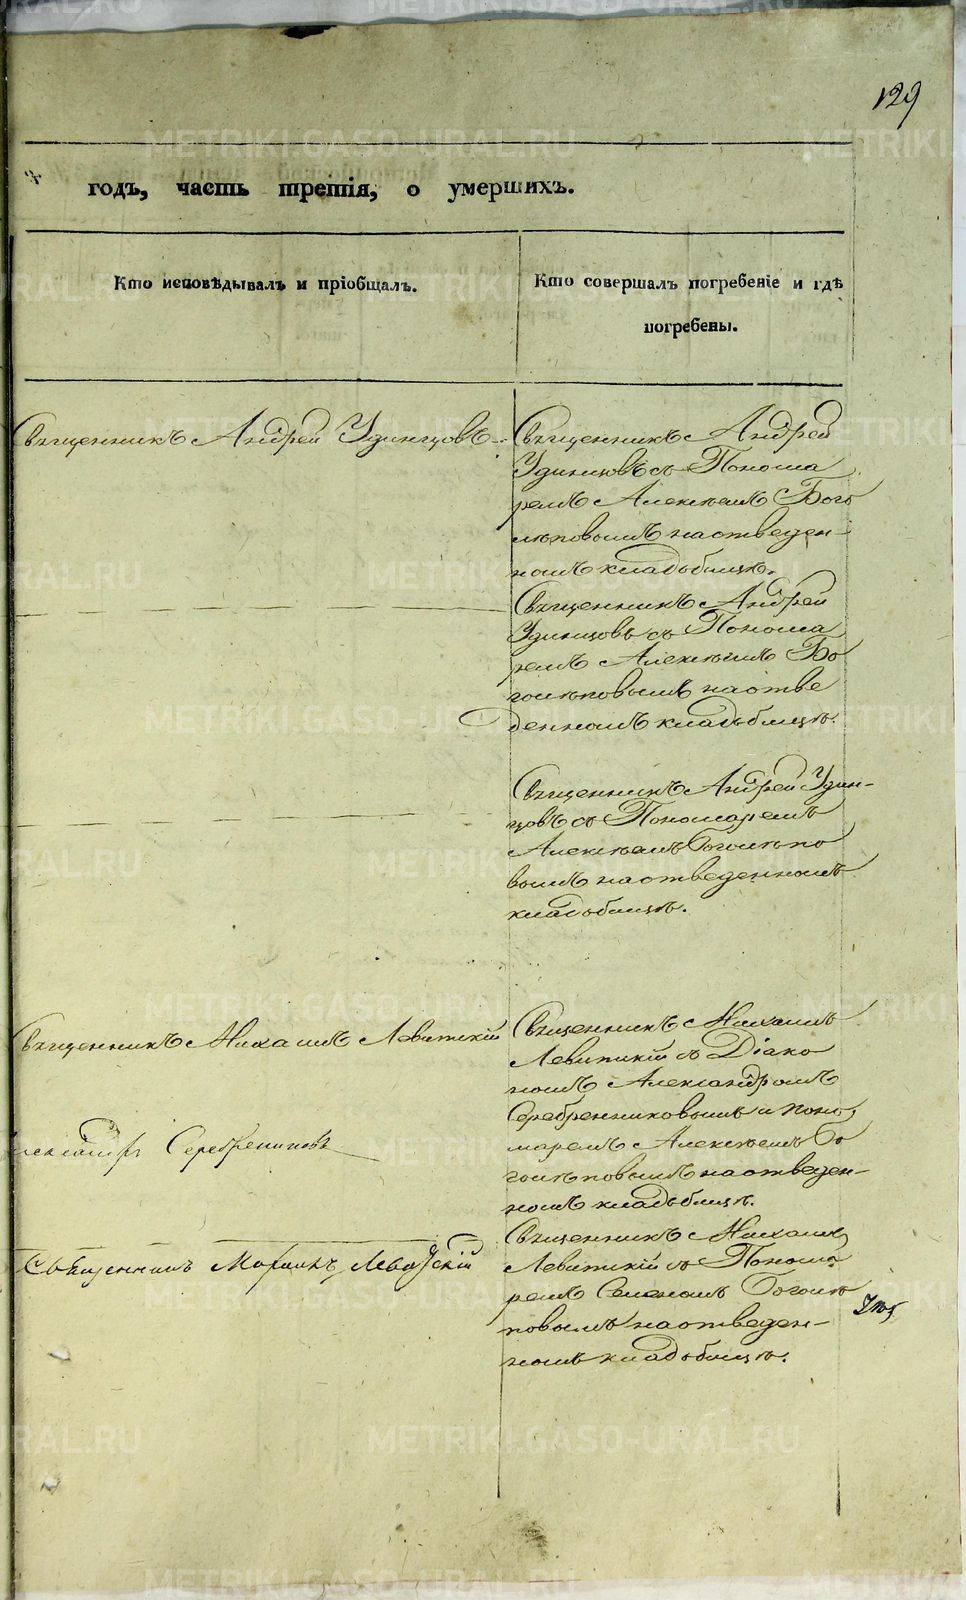 129
годъ, часть третія, о умершихъ.
Кто исповѣдывалъ и пріобщалъ.
Кто совершалъ погребеніе и гдѣ
погребены.
Священникъ Андрей Удинцовъ
Священникъ Андрей
Удинцовъ съ Понома
ремъ Алексѣемъ Бого
лѣповымъ на отведен-
номъ кладьбищѣ.
Священникъ Андрей
Удинцовъ съ Понома
ремъ Алексѣемъ Бо
голѣповымъ на отве
денномъ кладьбищѣ.
Священникъ Андрей Удин-
цовъ съ Пономаремъ
Алексѣемъ Боголѣпо
вымъ на отведенномъ
кладьбищѣ.
Священникъ Михаилъ Левитскій
Священникъ Михаилъ
Левитскій съ Діако
номъ Александромъ
Серебренниковымъ и поно
маремъ Алексѣемъ Бо
голѣповымъ на отведен-
номъ кладьбищѣ.
Серебрениковъ
Священникъ Михаилъ Левитскій
Священникъ Михаилъ
Левитскій съ Понома
ремъ Семеномъ Боголѣ
повымъ на отведен-
номъ кладьбищѣ.
METRIKI.GASO-URAL.RU